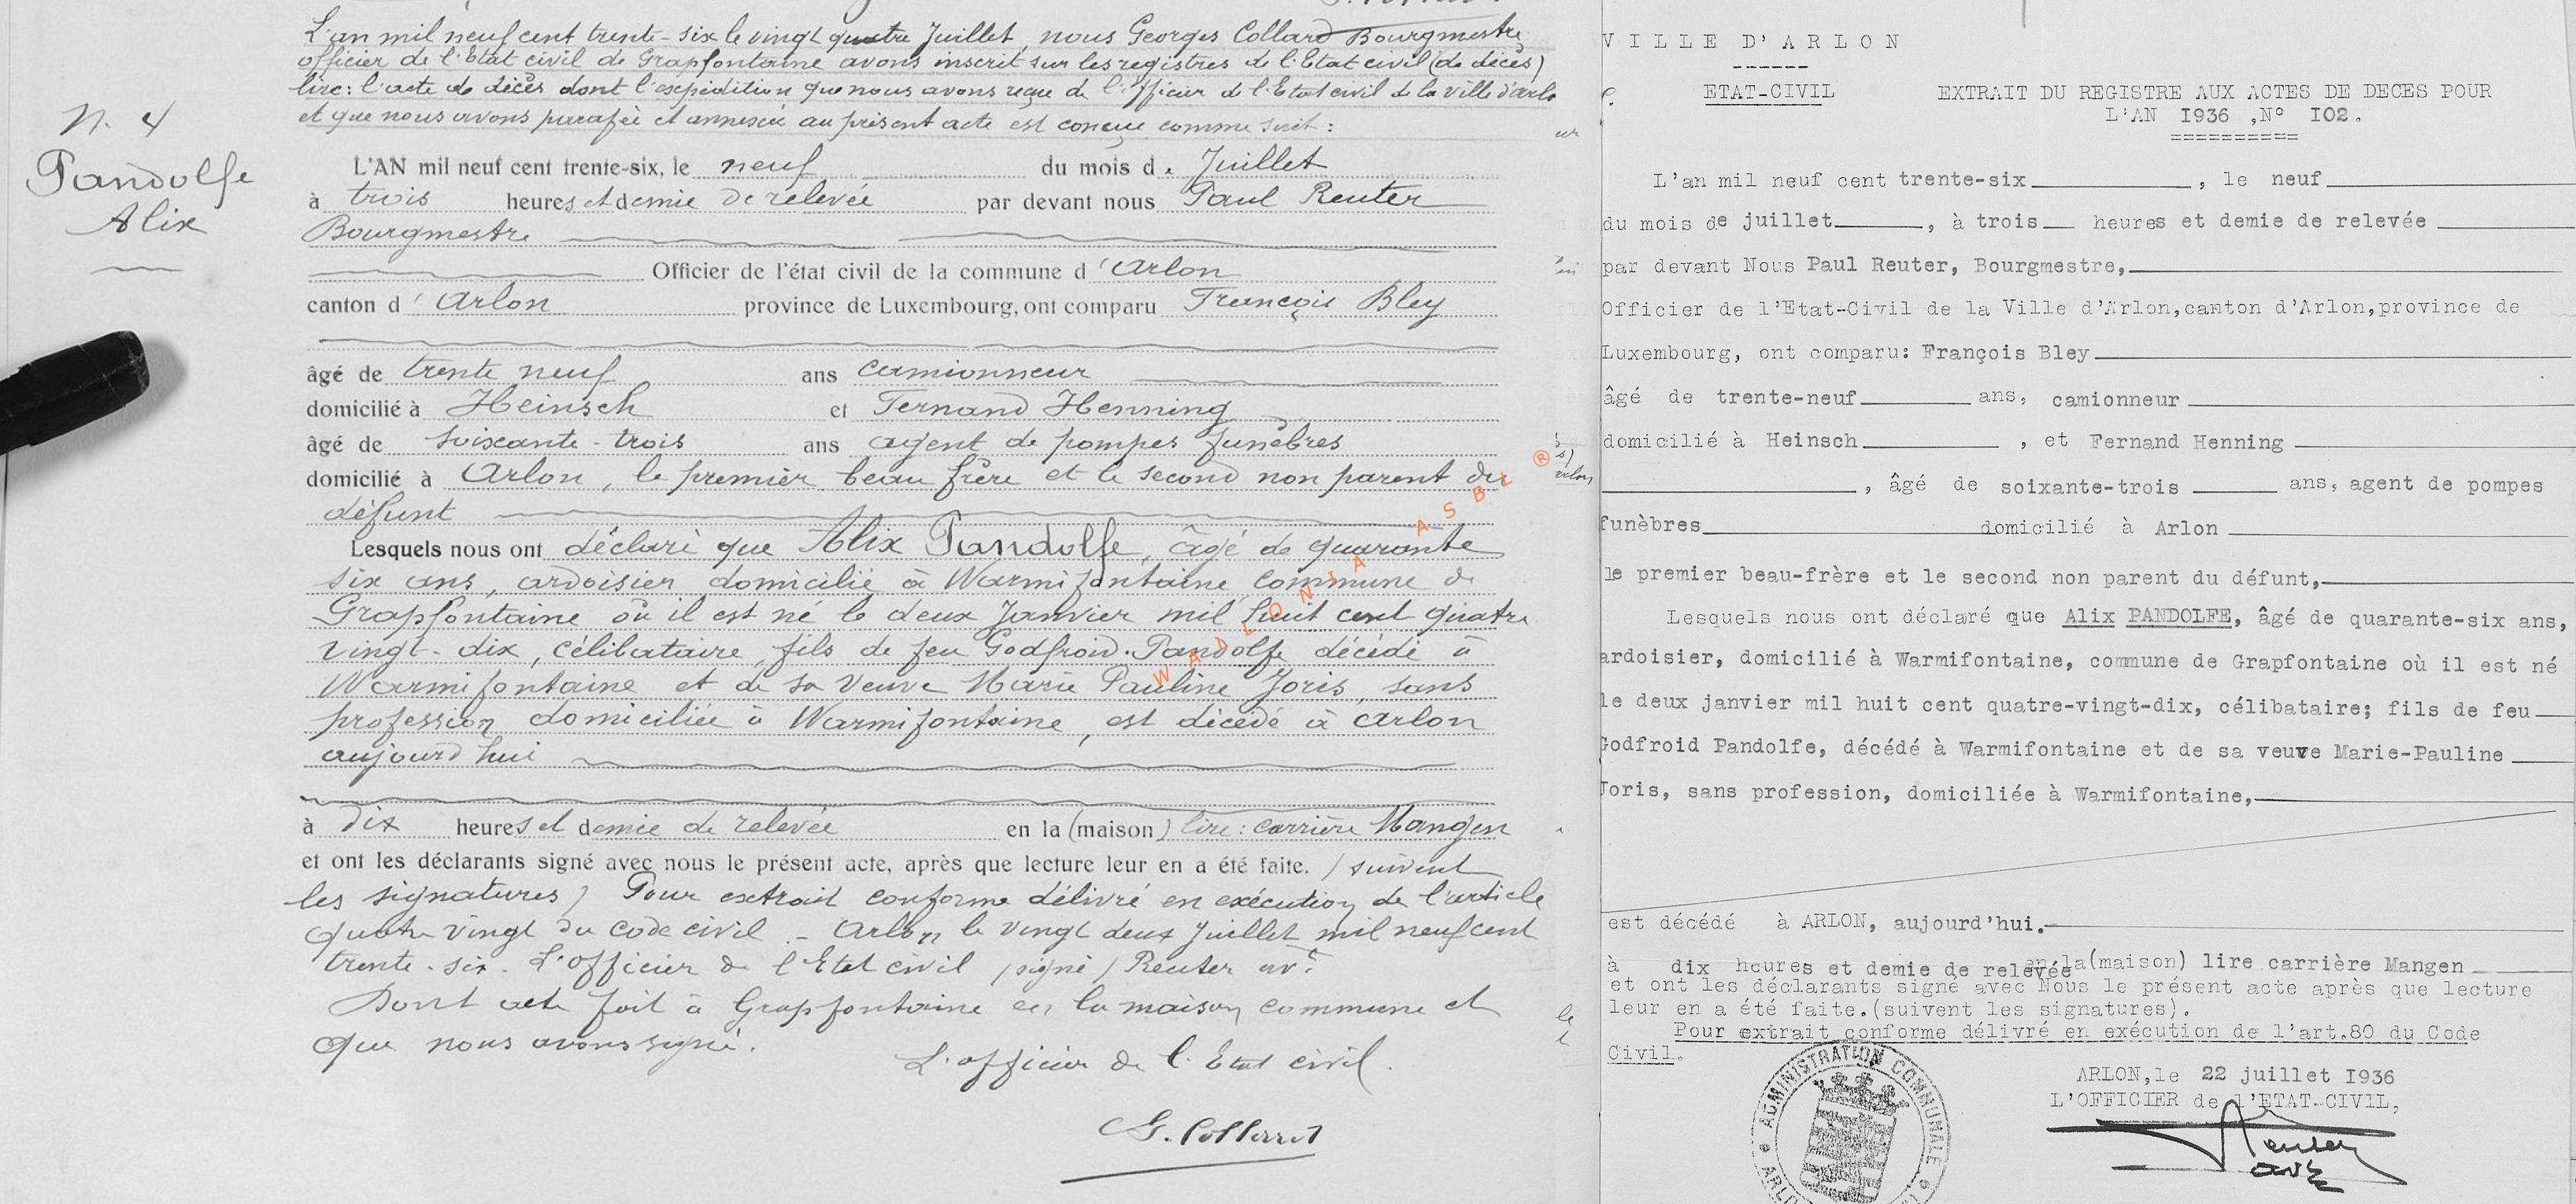 L'an mil neuf cent trente-six le vingt quatre Juillet, nous Georges Collard Bourgmestre
officier de l'Etat civil de Grapfontaine avons inscrit sur les registres de l'Etat civil (de décès)
lire: l'acte de décès dont l'expédition que nous avons reçue de l'Officier de l'Etat civil de la ville d'arlo
et que nous avons parafée et annexée au présent acte est conçue comme suit :
N. 4
Pandolfe
Alix
L'AN mil neuf cent trente-six, le neuf du mois d. Juillet
à trois heures et demie de relevée par devant nous Paul Reuter
Bourgmestre
Officier de l'état civil de la commune d'Arlon
canton d'Arlon province de Luxembourg, ont comparu François Bley
âgé de trente neuf ans camionneur
domicilié à Heinsch et Fernand Henning
âgé de soixante-trois ans agent de pompes funèbres
domicilié à Arlon, le premier beau frère et le second non parent du
défunt
Lesquels nous ont déclaré que Alix Pandolfe, âgé de quarante
six ans, ardoisier domicilié à Warmifontaine, commune de
Grapfontaine où il est né le deux Janvier mil huit cent quatre
vingt-dix, célibataire, fils de feu Godfroid Pandolfe décédé à
Warmifontaine et de sa veuve Marie Pauline Joris, sans
profession domiciliée à Warmifontaine, est décédé à Arlon
aujourd'hui
à dix heures et demie de relevée en la (maison) lire: carrière Mangen
et ont les déclarants signé avec nous le présent acte, après que lecture leur en a été faite. / suivent
les signatures) Pour extrait conforme délivré en exécution de l'article
quatre vingt du code civil - Arlon le vingt deux Juillet mil neuf cent
trente-six. L'officier de l'Etat civil /signé/ Reuter avt
Dont acte fait à Grapfontaine en la maison commune et
que nous avons signé.
L'officier de l'Etat civil.
G. Collard
WALLONIA ASBL ®
VILLE D'ARLON
ETAT-CIVIL
EXTRAIT DU REGISTRE AUX ACTES DE DECES POUR
L'AN I936 ,N° I02.
L'an mil neuf cent trente-six , le neuf
du mois de juillet , à trois heures et demie de relevée
par devant Nous Paul Reuter, Bourgmestre,
Officier de l'Etat-Civil de la Ville d'Arlon,canton d'Arlon,province de
Luxembourg, ont comparu: François Bley
âgé de trente-neuf ans, camionneur
domicilié à Heinsch , et Fernand Henning
, âgé de soixante-trois ans, agent de pompes
funèbres domicilié à Arlon
le premier beau-frère et le second non parent du défunt,
Lesquels nous ont déclaré que Alix PANDOLFE, âgé de quarante-six ans,
ardoisier, domicilié à Warmifontaine, commune de Grapfontaine où il est né
le deux janvier mil huit cent quatre-vingt-dix, célibataire; fils de feu
Godfroid Pandolfe, décédé à Warmifontaine et de sa veuve Marie-Pauline
Joris, sans profession, domiciliée à Warmifontaine,
est décédé à ARLON, aujourd'hui.
à dix heures et demie de relevée en la(maison) lire carrière Mangen
et ont les déclarants signé avec Nous le présent acte après que lecture
leur en a été faite.(suivent les signatures).
Pour extrait conforme délivré en exécution de l'art.80 du Code
Civil.
ARLON,le 22 juillet I936
L'OFFICIER de l'ETAT-CIVIL,
Reuter
avt
ADMINISTRATION COMMUNALE